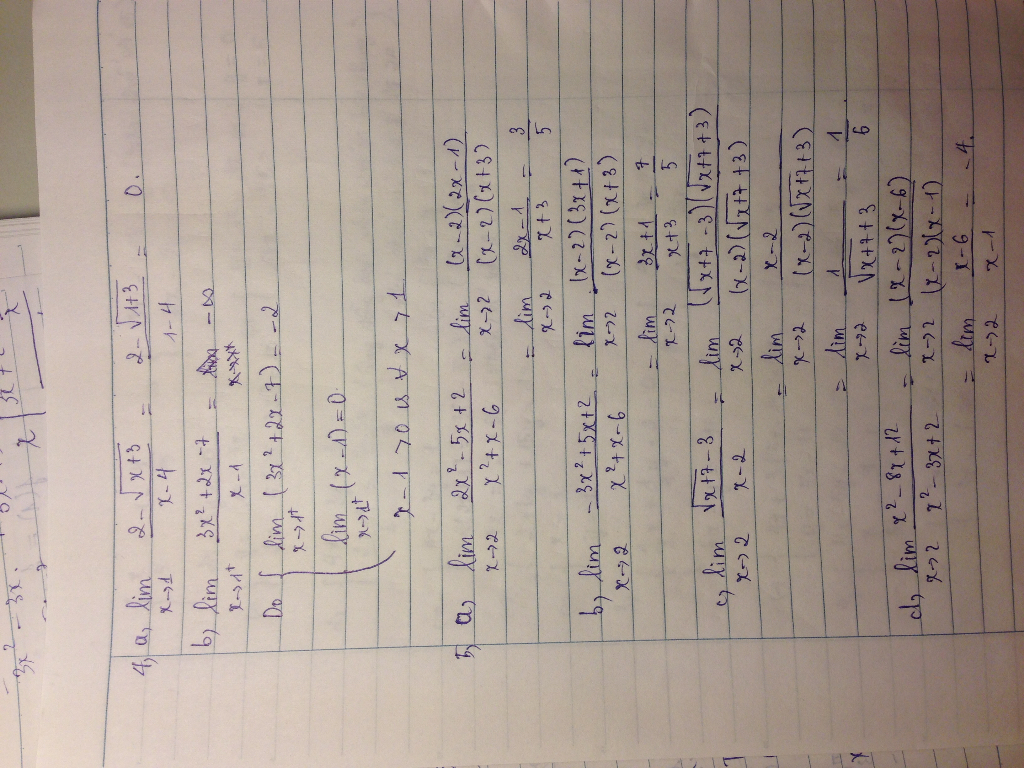 3x² - 3x.
4, a, lim x→1 (2 - √(x+3))/(x - 4) = (2 - √(1+3))/(1 - 4) = 0.
b, lim x→1⁺ (3x² + 2x - 7)/(x - 1) = -∞
Do { lim x→1⁺ (3x² + 2x - 7) = -2
lim x→1⁺ (x - 1) = 0
x - 1 > 0 ∀ x > 1
5, a, lim x→2 (2x² - 5x + 2)/(x² + x - 6) = lim x→2 ((x-2)(2x-1))/((x-2)(x+3))
= lim x→2 (2x - 1)/(x + 3) = 3/5
b, lim x→2 (-3x² + 5x + 2)/(x² + x - 6) = lim x→2 ((x-2)(3x+1))/((x-2)(x+3))
= lim x→2 (3x + 1)/(x + 3) = 7/5
c, lim x→2 (√(x+7) - 3)/(x - 2) = lim x→2 ((√(x+7) - 3)(√(x+7) + 3))/((x-2)(√(x+7) + 3))
= lim x→2 (x - 2)/((x-2)(√(x+7) + 3))
= lim x→2 1/(√(x+7) + 3) = 1/6.
d, lim x→2 (x² - 8x + 12)/(x² - 3x + 2) = lim x→2 ((x-2)(x-6))/((x-2)(x-1))
= lim x→2 (x - 6)/(x - 1) = -4.